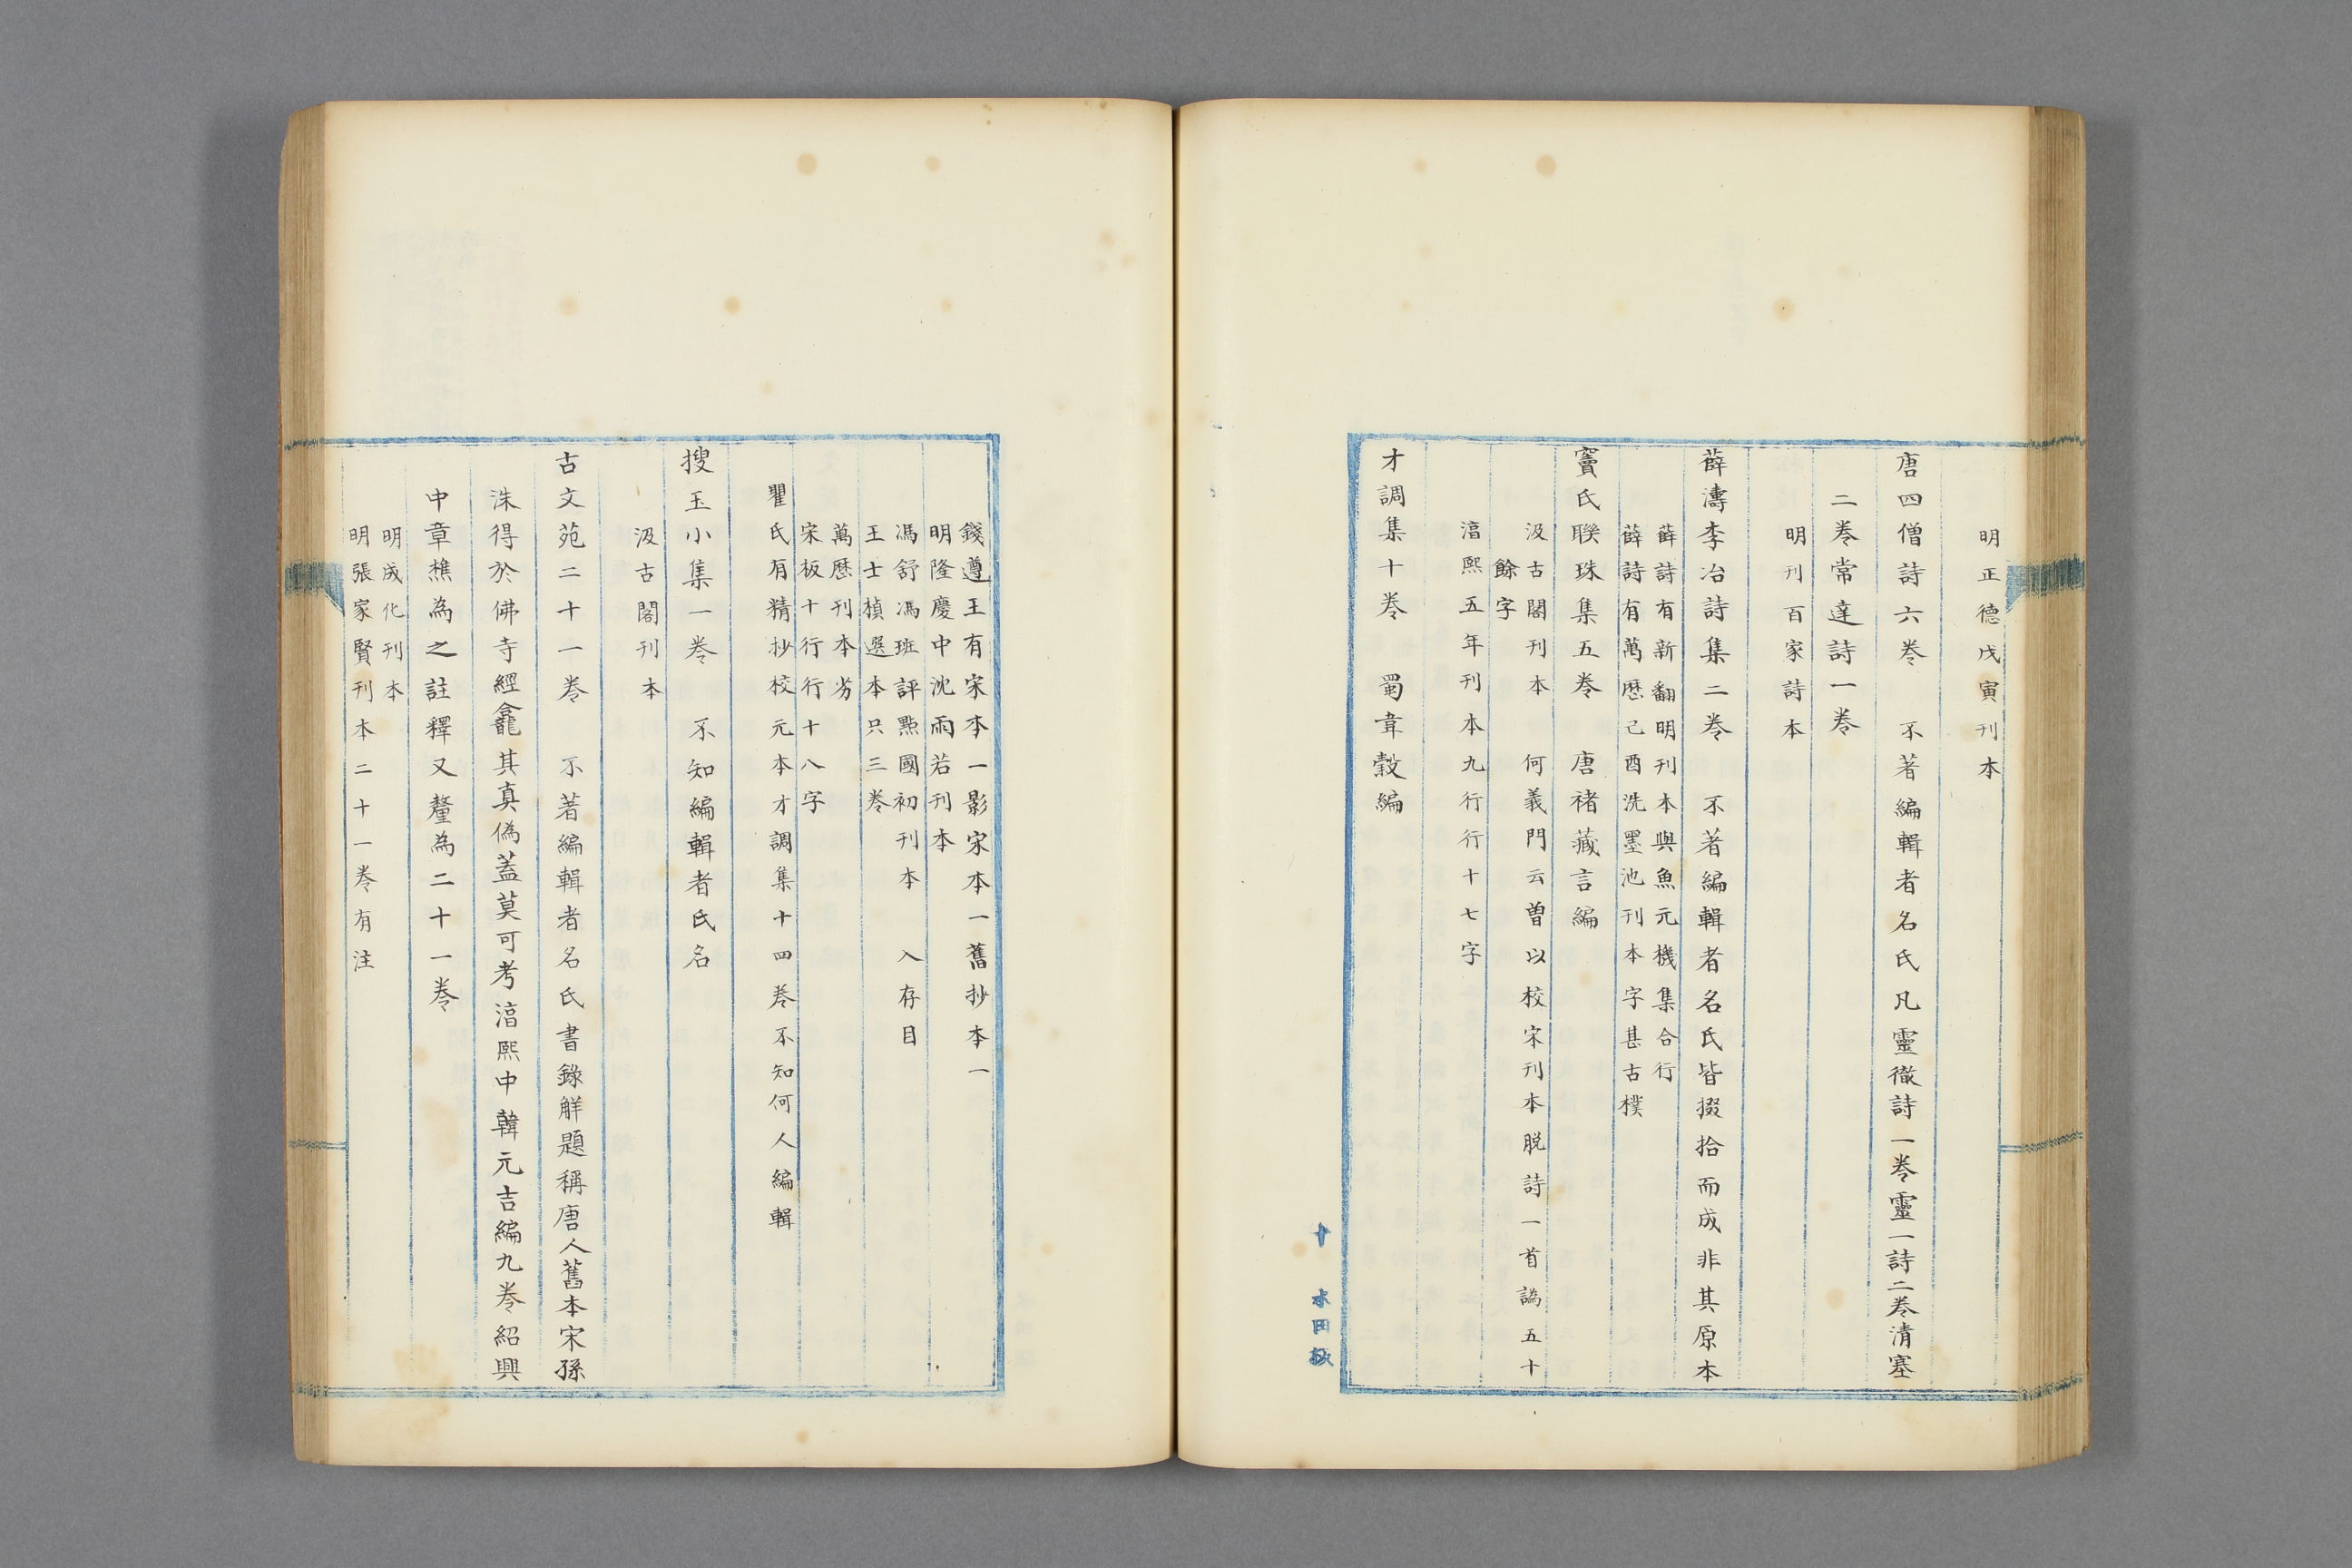 明正德戊寅刊本
唐四僧詩六卷　不著編輯者名氏凡靈徹詩一卷靈一詩二卷清塞
二卷常達詩一卷
明刊百家詩本
薛濤李冶詩集二卷　不著編輯者名氏皆掇拾而成非其原本
薛詩有新翻明刊本與魚元機集合行
薛詩有萬歷己酉洗墨池刊本字甚古樸
竇氏聯珠集五卷　唐褚藏言編
汲古閣刊本　何義門云曾以校宋刊本脱詩一首譌五十
餘字
淳熙五年刊本九行行十七字
才調集十卷　蜀韋縠編
十
水田
錢遵王有宋本一影宋本一舊抄本一
明隆慶中沈雨若刊本
馮舒馮班評點國初刊本　入存目
王士楨選本只三卷
萬歷刊本劣
宋板十行行十八字
瞿氏有精抄校元本才調集十四卷不知何人編輯
搜玉小集一卷　不知編輯者氏名
汲古閣刊本
古文苑二十一卷　不著編輯者名氏書錄解題稱唐人舊本宋孫
洙得於佛寺經龕其真偽蓋莫可考淳熙中韓元吉編九卷紹興
中章樵為之註釋又釐為二十一卷
明成化刊本
明張家賢刊本二十一卷有注